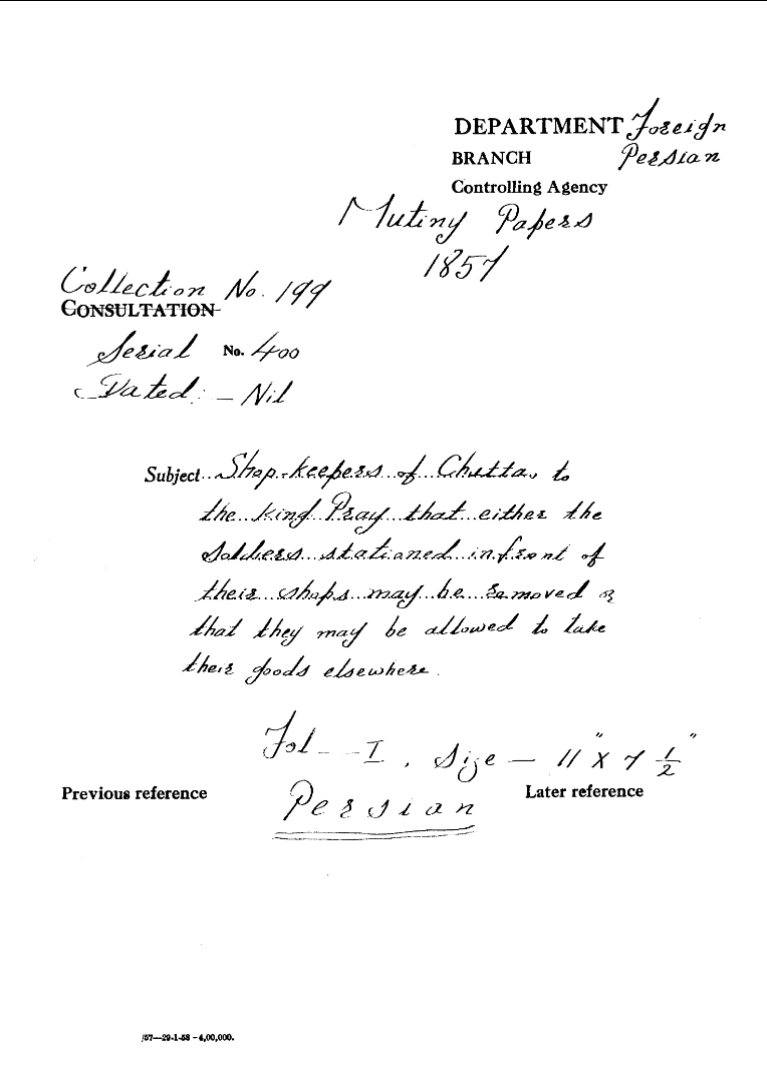 DEPARTMENT Foreign
BRANCH Persian
Controlling Agency
Mutiny Papers
1857
Collection No. 199
CONSULTATION
Serial No. 400
Dated: - Nil
Subject.. Shop-keepers of Chutta, to
the king Pray that either the
stationed in front of
their shops may be removed or
that they may be allowed to take
their goods elsewhere.
Fol - - I, Size - 11" x 7 1/2"
Previous reference
Persian
Later reference
57—29-1-58 - 4,00,000.